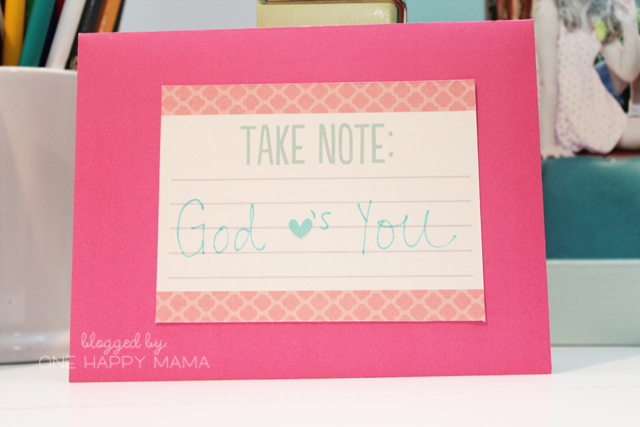 TAKE NOTE:
God ♥'s You
blogged by:
ONE HAPPY MAMA